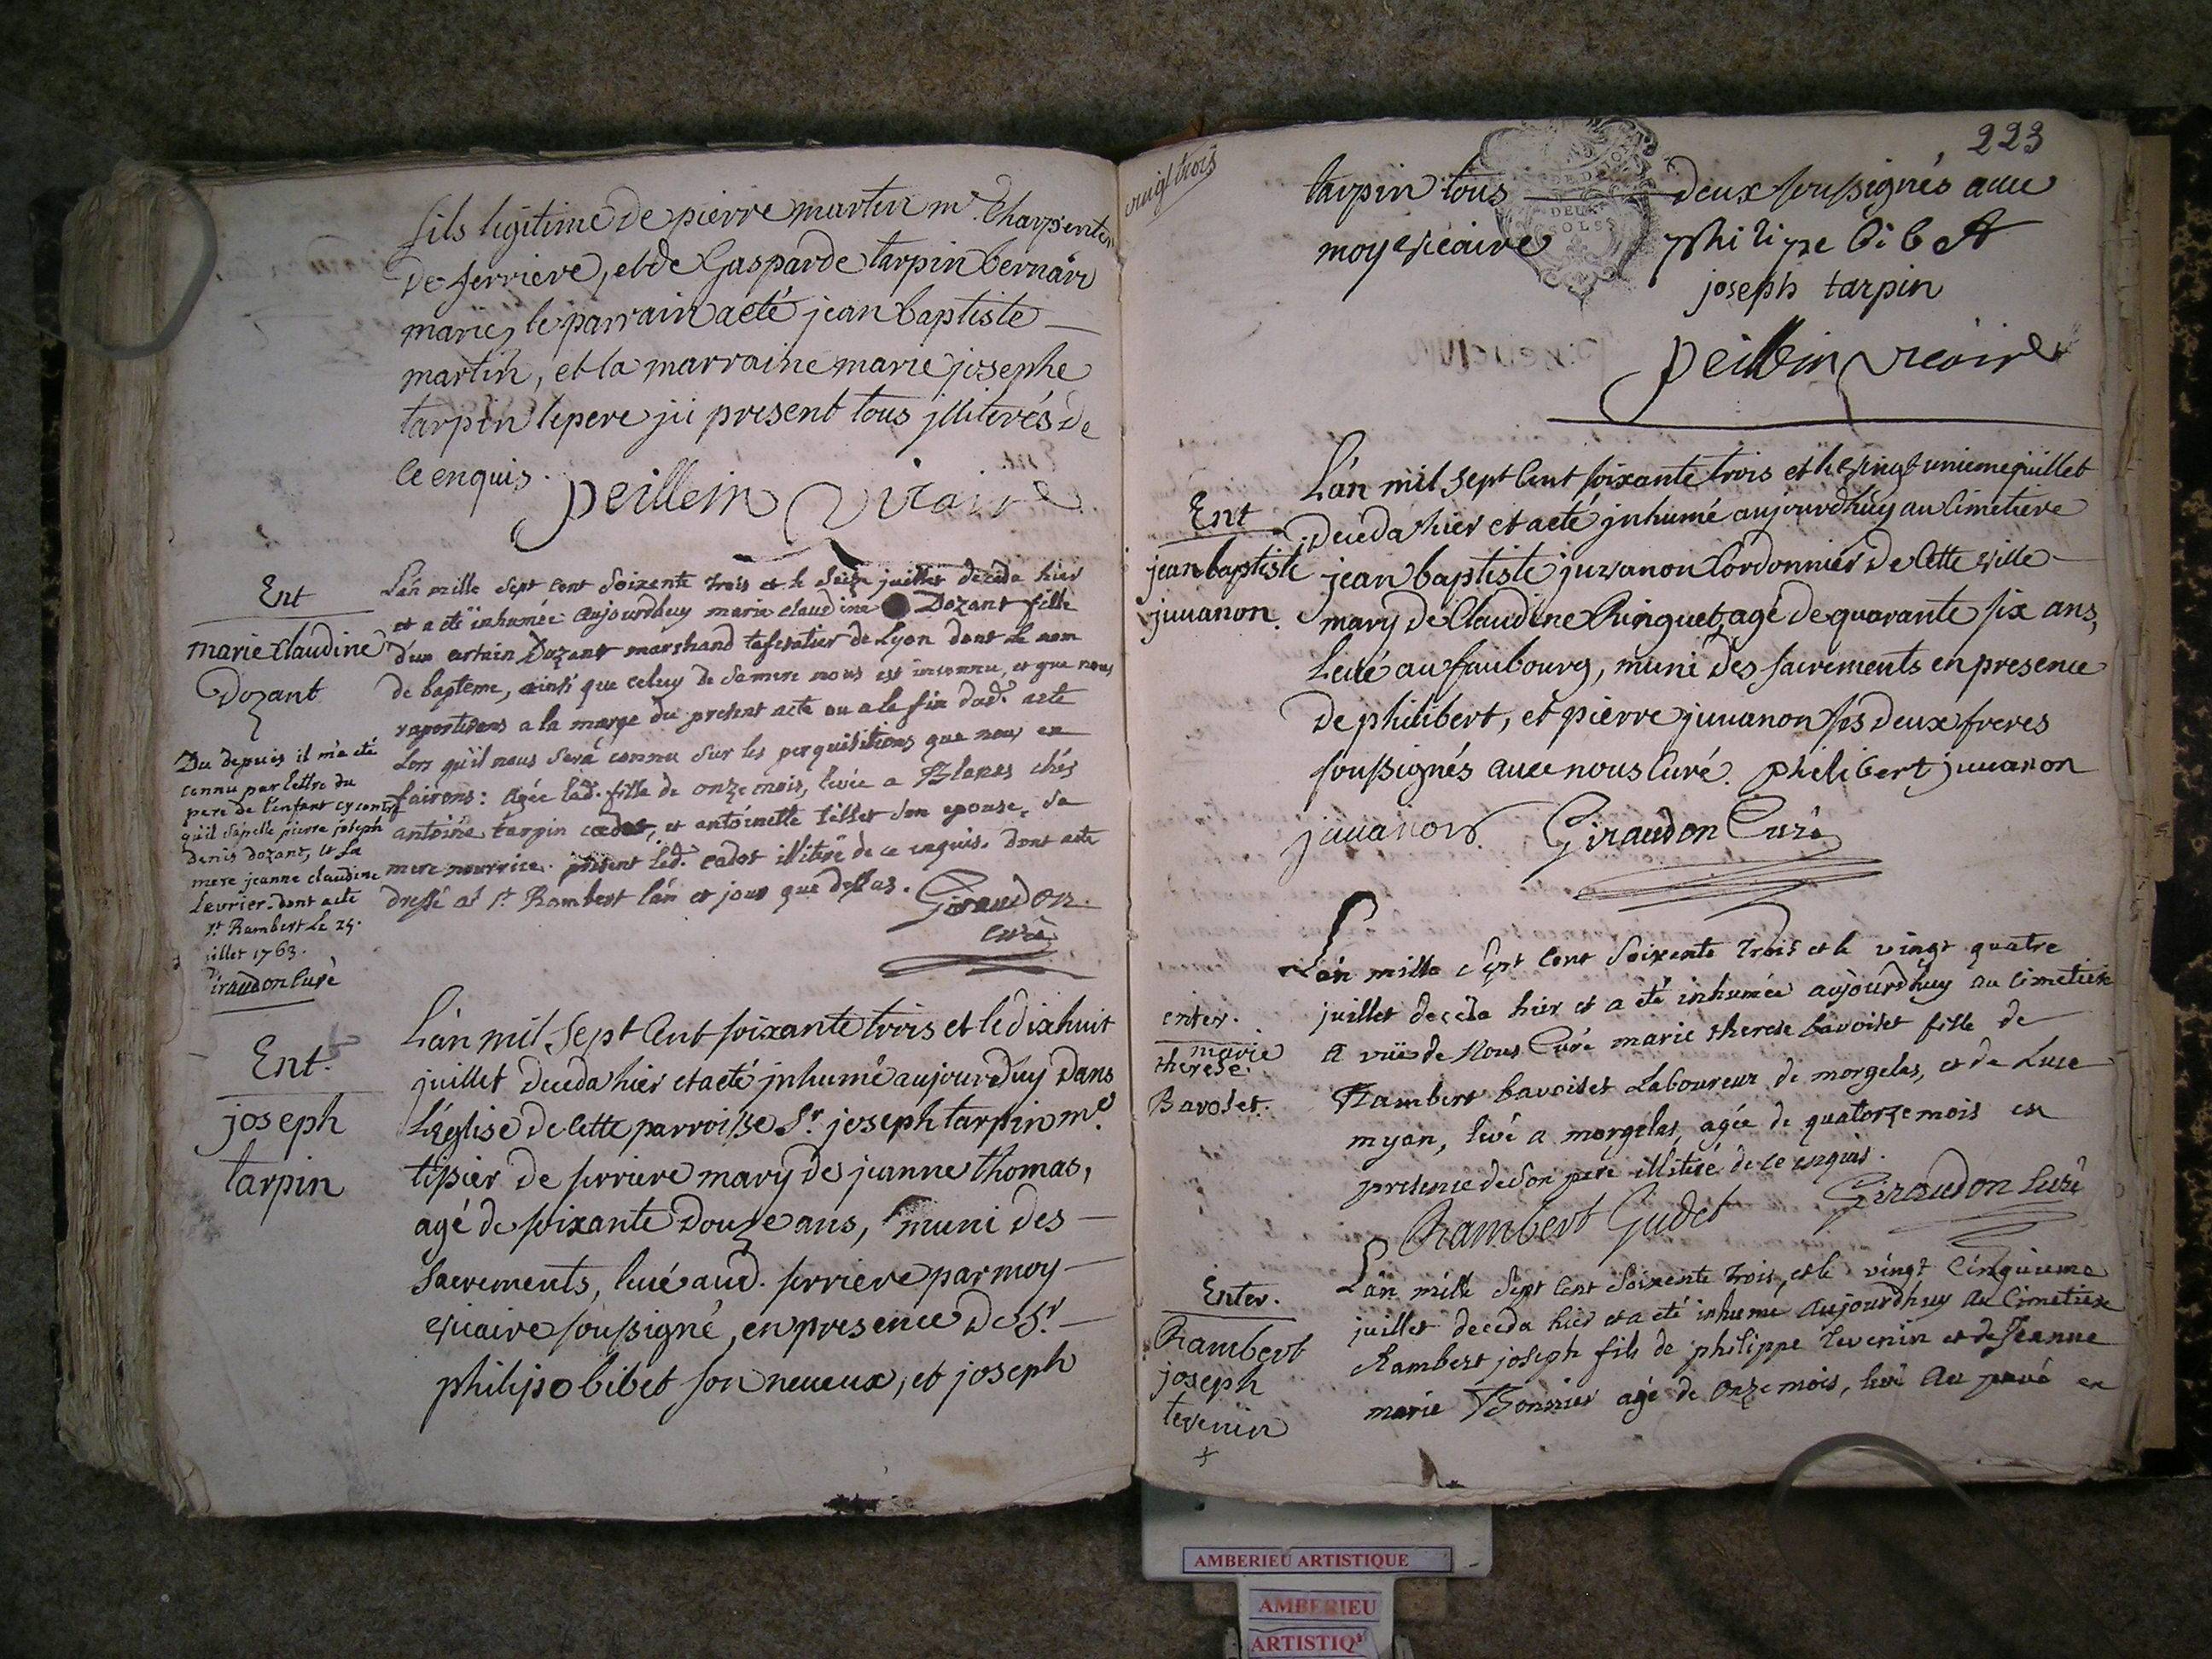 fils legitime de pierre martin me. Charpentier
de serriere, et de Gasparde tarpin bernard
mariés, le parrain a eté jean baptiste
martin, et la marraine marie josephe
tarpin le pere ji present tous jlliterés de
ce enquis.
peillein vicaire
Ent
marie claudine
Dozant
Du depuis il m'a eté
connu par lettre du
pere de l'enfant cy contre
qu'il s'apelle pierre joseph
denis dozant, et la
mere jeanne claudine
Levrier. dont acte
St. Rambert le 25.
juillet 1763.
Giraudon Curé
L'an mille sept cent soixente trois et le seize juillet deceda hier
et a eté inhumée aujourdhuy marie claudine Dozant fille
d'un certain Dozant marchand tafetatier de Lyon dont le nom
de bapteme, ainsi que celuy de sa mere nous est inconnu, et que nous
raporterons a la marge du present acte ou a la fin dud. acte
Lors qu'il nous sera connu sur les perquisitions que nous en
fairons: Agée lad. fille de onze mois, levée a Blanas chés
antoine tarpin cadot, et antoinette tillet son epouse, sa
mere nourrice. present led. cadot illiteré de ce enquis. Dont acte
dressé a St. Rambert l'an et jour que dessus.
Giraudon
curé
Ent.
joseph
tarpin
L'an mil sept Cent soixante trois et le dixhuit
juillet deceda hier et a eté jnhumé aujourd'huy dans
L'église de cette parroisse Sr. joseph tarpin me.
tipier de serriere mary de jeanne thomas,
agé de soixante douze ans, muni des
sacrements, levé aud. serriere par moy
vicaire soussigné, en presence de Sr.
philipe bibet son neveux, et joseph
vingt trois
223
DEUX
SOLS
tarpin tous deux soussignés avec
moy vicaire
Philipe bibet
joseph tarpin
peillein vicaire
Ent
jean baptiste
juvanon.
L'an mil sept Cent soixante trois et le vingt unieme juillet
deceda hier et a eté jnhumé aujourdhuy au Cimetiere
jean baptiste juvanon Cordonnier de cette ville
mary de Claudine Ringuet, agé de quarante six ans,
Levé au faubourg, muni des sacrements en presence
de philibert, et pierre juvanon ses deux freres
soussignés avec nous Curé. philibert juvanon
juvanon. Giraudon Curé
enter.
marie
therese.
Bavoset.
L'an mille sept cent soixente trois et le vingt quatre
juillet deceda hier et a eté inhumée aujourdhuy au cimetiere
a vuë de Nous Curé marie therese bavoiset fille de
Rambert bavoiset Laboureur de morgelas, et de Luce
myan, levé a morgelas, agée de quatorze mois en
presence de son pere illiteré de ce enquis.
Rambert Gudet Giraudon Curé
Enter.
Rambert
joseph
tevenin
L'an mille sept cent soixente trois, et le vingt cinquieme
juillet deceda hier et a eté inhumé aujourdhuy au cimetiere
Rambert joseph fils de philippe tevenin et de Jeanne
marie Bonnier agé de onze mois, levé au pavé en
AMBERIEU ARTISTIQUE
AMBERIEU
ARTISTIQ